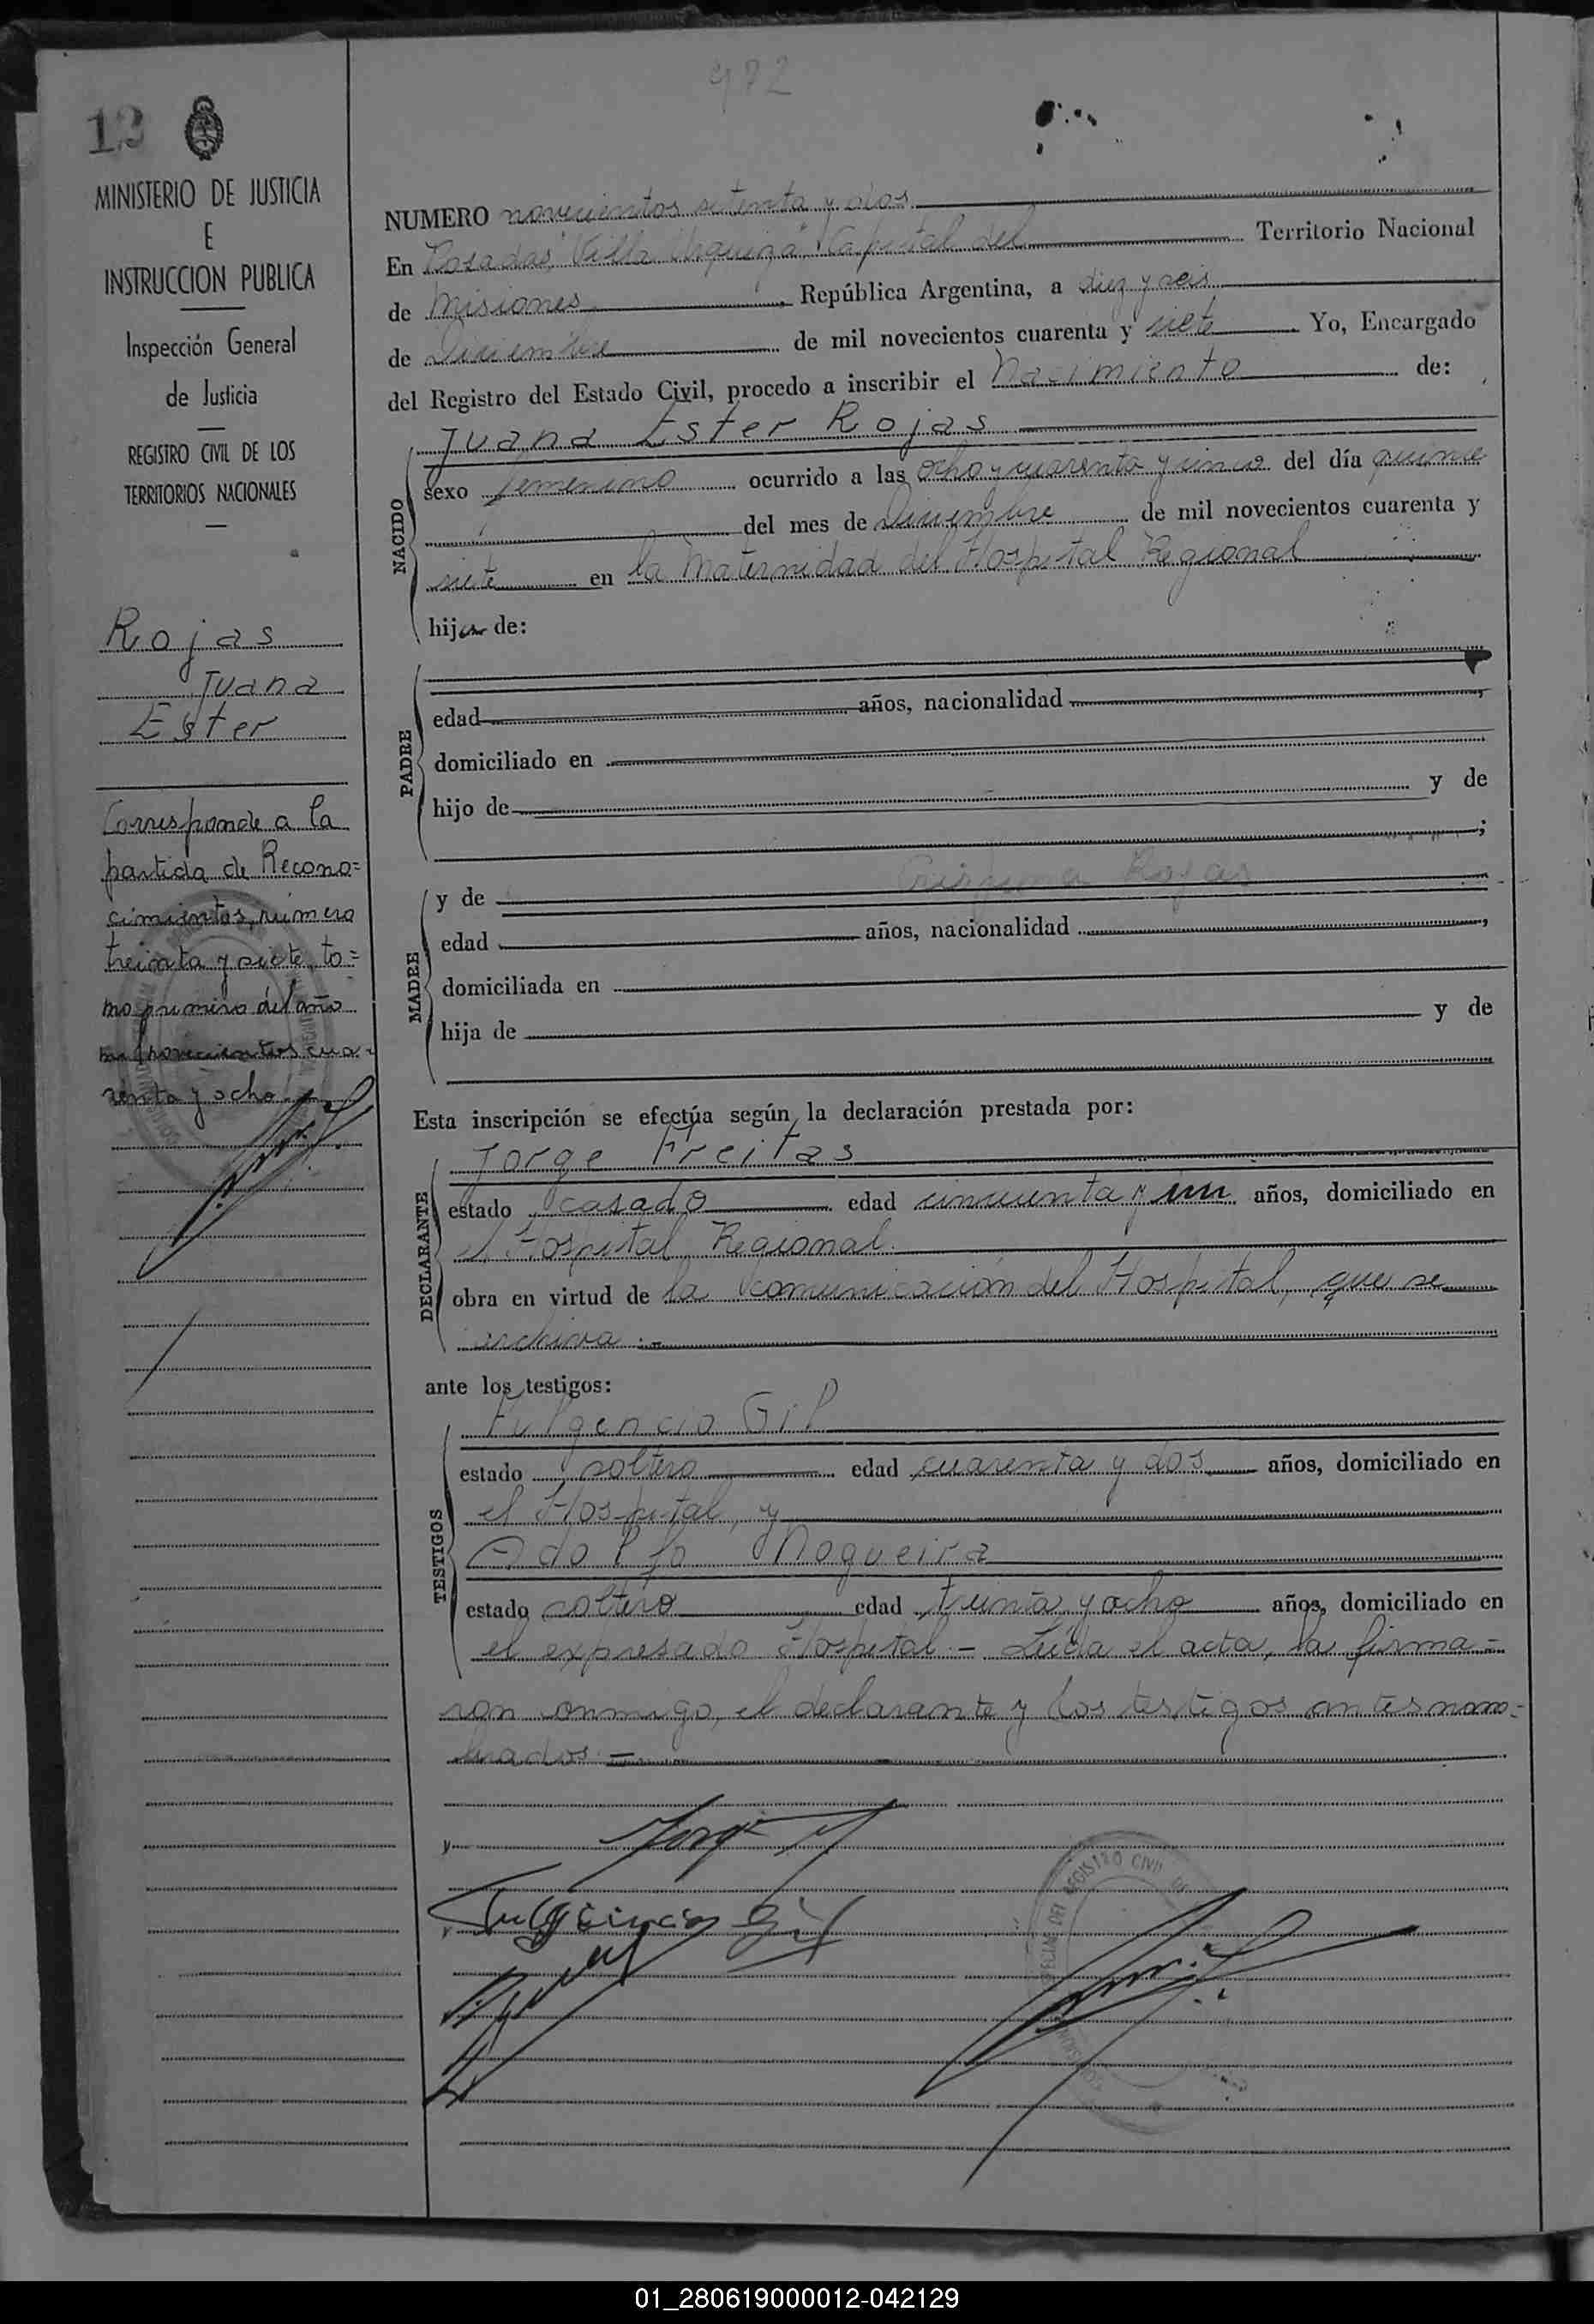 972
12
MINISTERIO DE JUSTICIA
E
INSTRUCCION PUBLICA
Inspección General
de Justicia
REGISTRO CIVIL DE LOS
TERRITORIOS NACIONALES
Rojas
Juana
Ester
Corresponde a la
partida de Recono=
cimientos, número
treinta y siete, to=
mo primero del año
mil novecientos cua-
renta y ocho
NUMERO novecientos setenta y dos
En Posadas "Villa Urquiza" Capital del Territorio Nacional
de Misiones, República Argentina, a diez y seis
de Diciembre de mil novecientos cuarenta y siete Yo, Encargado
del Registro del Estado Civil, procedo a inscribir el Nacimiento de:
NACIDO
Juana Ester Rojas
sexo femenino ocurrido a las ocho y cuarenta y cinco del día quince
del mes de Diciembre de mil novecientos cuarenta y
siete en la Maternidad del Hospital Regional
hija de:
PADRE
edad años, nacionalidad
domiciliado en
hijo de y de
MADRE
y de Rojas
edad años, nacionalidad
domiciliada en
hija de y de
Esta inscripción se efectúa según la declaración prestada por:
DECLARANTE
Jorge Freitas
estado casado edad cincuenta y un años, domiciliado en
el Hospital Regional.
obra en virtud de la comunicación del Hospital, que se
archiva.-
ante los testigos:
TESTIGOS
Fulgencio Gil
estado soltero edad cuarenta y dos años, domiciliado en
el Hospital, y
Adolfo Nogueira
estado soltero edad treinta y ocho años, domiciliado en
el expresado Hospital.- Leída el acta, la firma=
ron conmigo, el declarante y los testigos antes nom=
brados.-
Fulgencio Gil
REGISTRO CIVIL
01_280619000012-042129